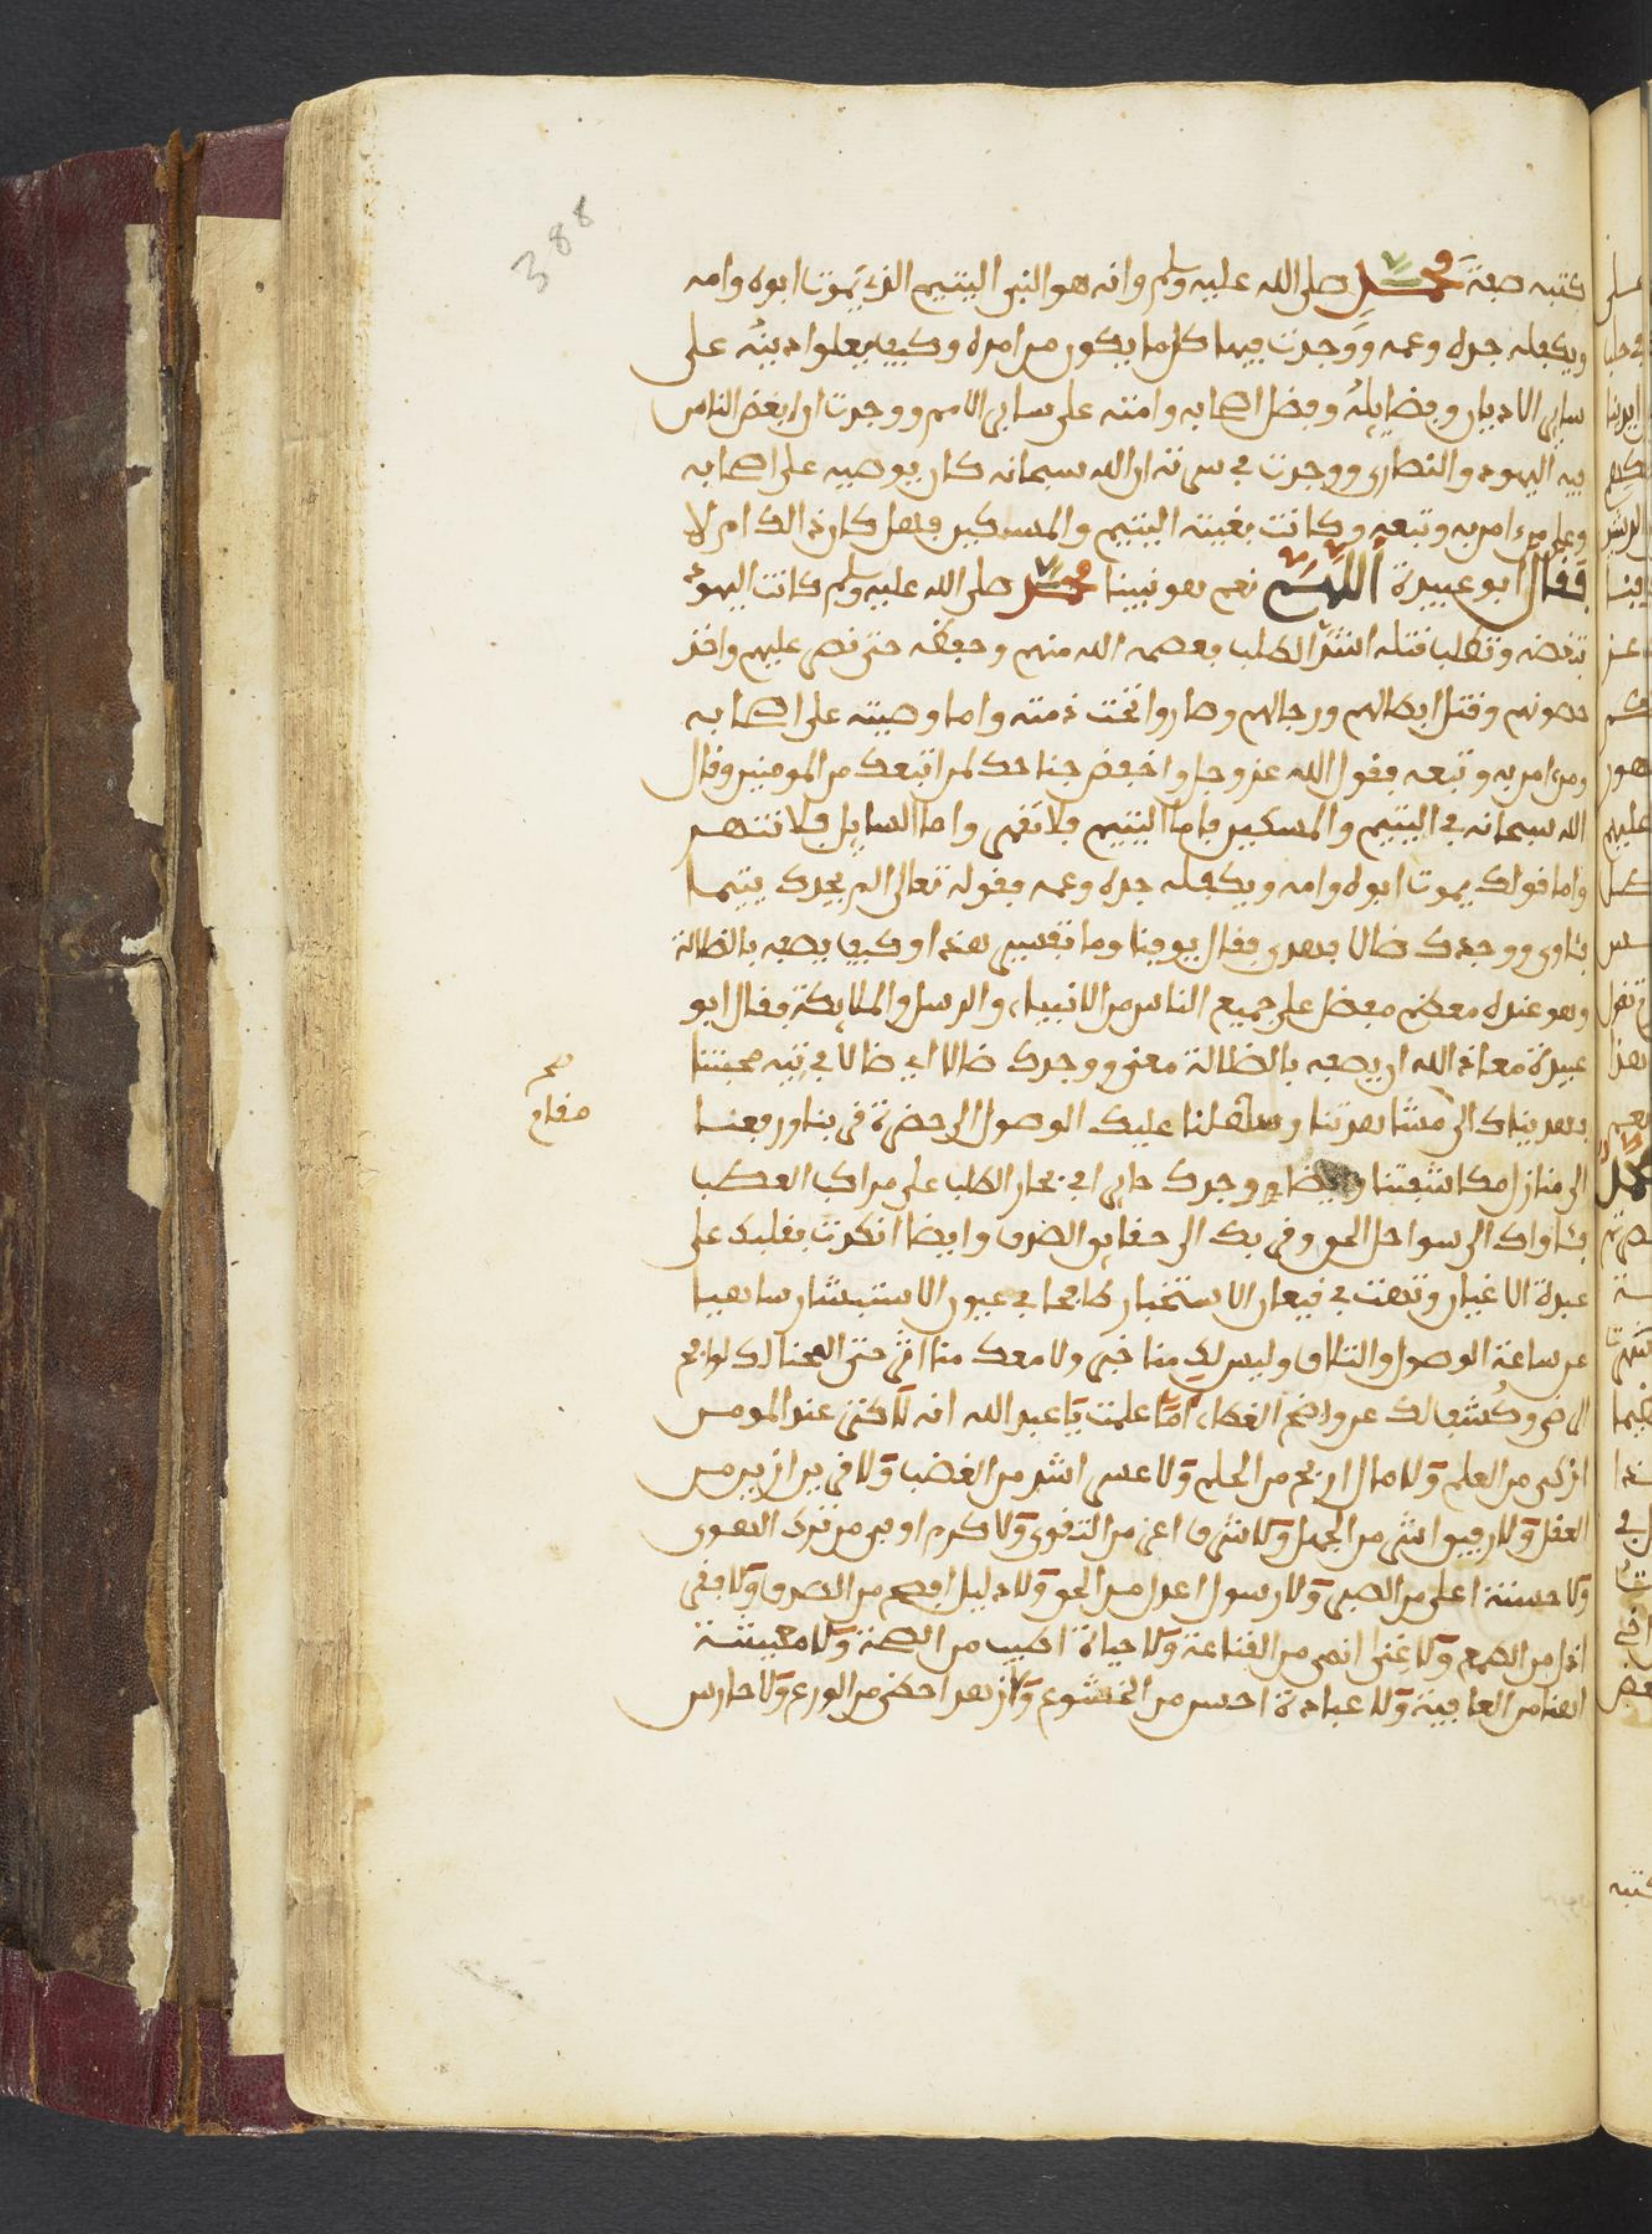 388
كتبه صفة محمد صلى الله عليه وسلم وانه هو النبي اليتيم الذي يموت ابوه وامه
ويكفله جده وعمه ووجدت فيها كل ما يكون من امره وكيف يعلوا دينه على
ساير الاديان وفضايله وفضل اصحابه وامته على ساير الامم ووجدت ان ابغض الناس
فيه اليهود والنصارى ووجدت في سيرته ان الله سبحانه كان يوصيه على اصحابه
وعلى من امن به وتبعه وكانت بغيته اليتيم والمسكين فهل كان ذالك ام لا
فقال ابو عبيدة اللهم نعم هو نبينا محمد صلى الله عليه وسلم كانت اليهود
تبغضه وتطلب قتله اشد الطلب فعصمه الله منهم وحفظه حتى نصر عليهم واخذ
حصونهم وقتل ابطالهم ورجالهم وصاروا تحت ذمته واما وصيته على اصحابه
ومن امن به وتبعه فقول الله عز وجل واخفض جناحك لمن اتبعك من المومنين وقال
الله سبحانه في اليتيم والمسكين فاما اليتيم فلا تقهر واما السايل فلا تنهر
واما قولك يموت ابوه وامه ويكفله جده وعمه فقوله تعالى الم يجدك يتيما
فئاوى ووجدك ضالا فهدى فقال يوقنا وما تفسير هذا وكيف يصفه بالظالة
وهو عنده معظم مفضل على جميع الناس من الانبياء والرسل والملايكة فقال ابو
عبيدة معاذ الله ان يصفه بالظالة معنى ووجدك ضالا اي ظالا في تيه محبتنا
فهديناك الى مشاهدتنا وسهلنا عليك الوصول الى حضرة قربنا ورفعنا
صح
مقام
الى منازل مكاشفتنا وايضا ووجدك حاير في بحار الطلب على مراكب العطب
فئاواك الى سواحل الحق وقربك الى حقايق الصدق وايضا انكرت بقلبك على
عبدة الاغيار وتهت في قيعان الاستخبار طامحا في عيون الاستبشار ساهيا
عن ساعة الوصول والتلاق وليس لك منا خبر ولا معك منا اثر حتى المحنا لك لوايح
الرضى وكشف لك عن واضح الغطاء اما علمت يا عبد الله انه لا كنز عند المومن
ازكى من العلم ولا مال اربح من الحلم ولا عسر اشد من الغضب ولا قرين ازين من
العقل ولا رفيق اشر من الجهل ولا شرف اعز من التقوى ولا كرم اوفى من ترك الهوى
ولا حسنة اعلى من الصبر ولا رسول اعدل من الحق ولا دليل افصح من الصدق ولا فقر
اذل من الطمع ولا غنى انهى من القناعة ولا حياة اطيب من الصحة ولا معيشة
اهنا من العافية ولا عبادة احسن من الخشوع ولا زهد احظى من الورع ولا حارس